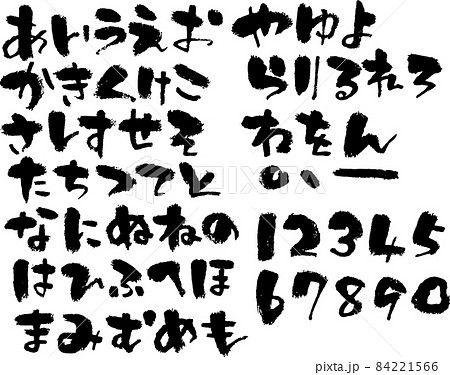 あいうえお
かきくけこ
さしすせそ
たちつてと
なにぬねの
はひふへほ
まみむめも
やゆよ
らりるれろ
わをん
゜゛ー
12345
67890
PIXTA
pixta.jp - 84221566